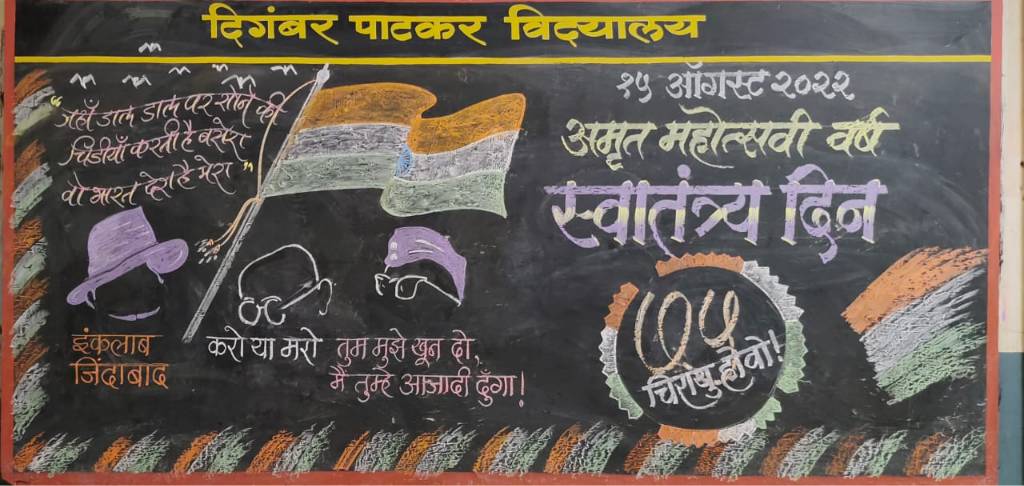 दिगंबर पाटकर विद्यालय
"जहाँ डाल डाल पर सोने की
चिडीयाँ करती है बसेरा
वो भारत देश है मेरा"
१५ ऑगस्ट २०२२
अमृत महोत्सवी वर्ष
स्वातंत्र्य दिन
७५
चिरायु होवो!
इंकलाब
जिंदाबाद
करो या मरो
तुम मुझे खून दो,
मैं तुम्हे आजादी दुँगा!